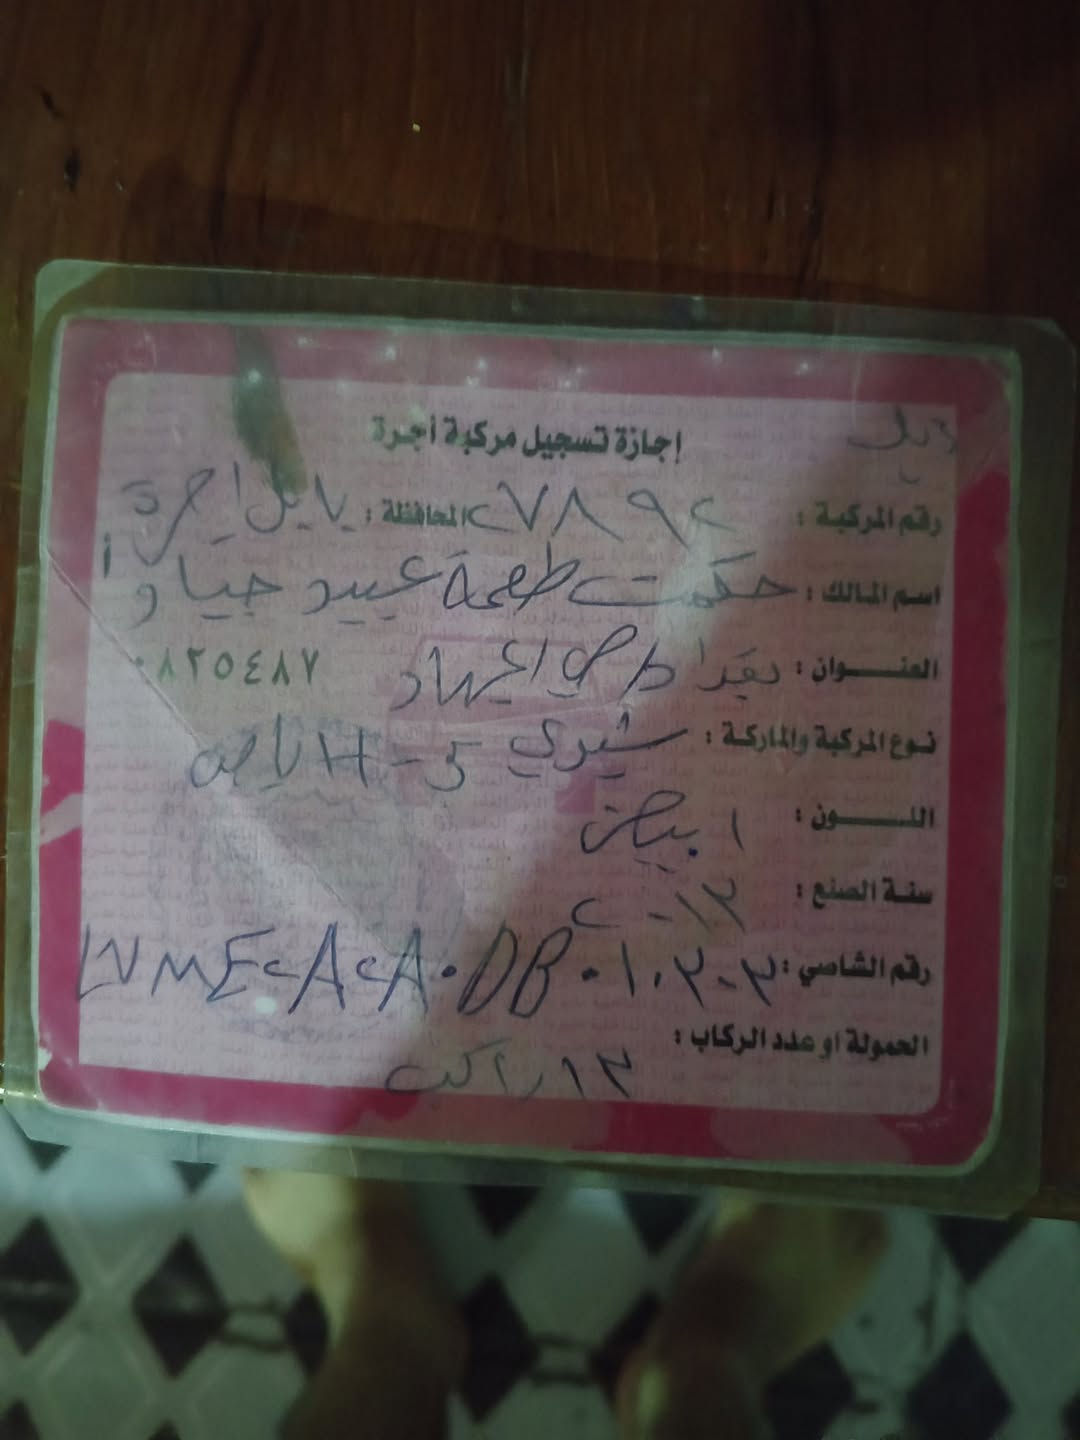 إجازة تسجيل مركبة أجرة
رقم المركبة : ٢٧٨٩٢ المحافظة : بابل اجرة
أ
اسم المالك : حكمت طعمة عبيد جياد و
العنوان : بغداد حي الجهاد ٠٨٢٥٤٨٧
نوع المركبة والماركة : شيري H-5 باص
اللــــون : ابيض
سنة الصنع : ٢٠١٢
رقم الشاصي :
الحمولة او عدد الركاب :
١٣ راكب